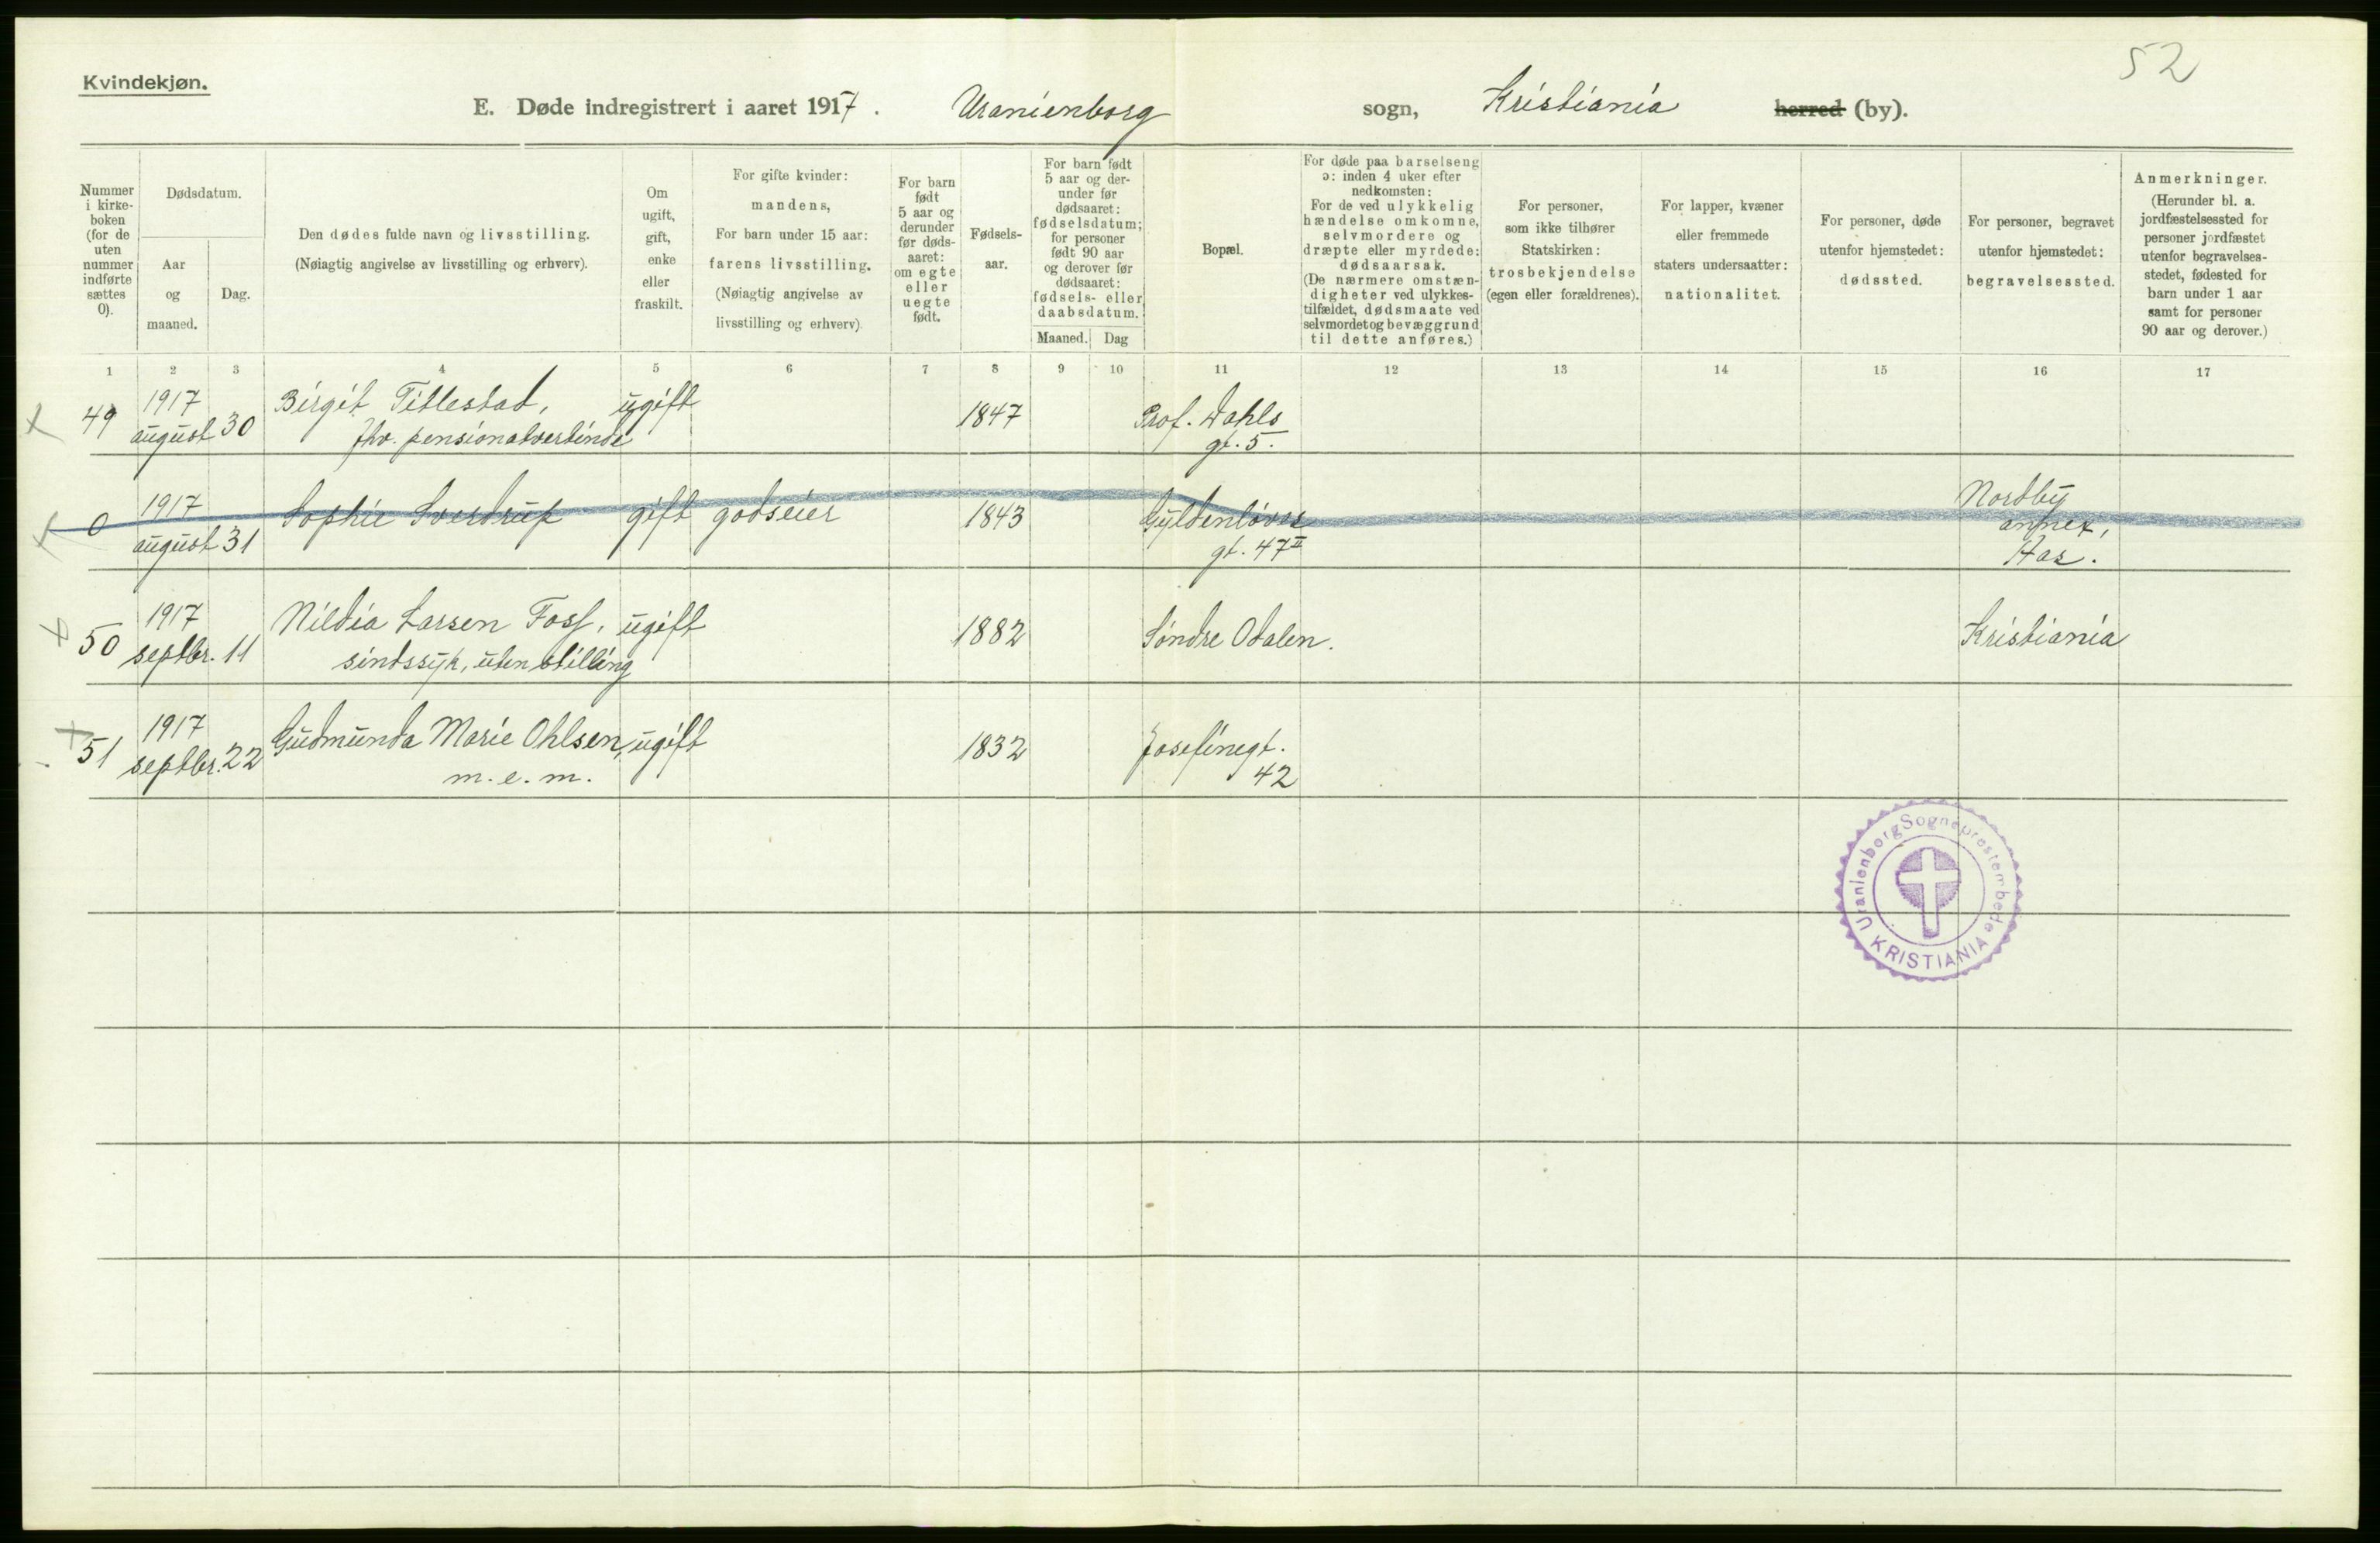 52
Kvindekjøn.
E. Døde indregistrert i aaret 1917. Uranienborg sogn, Kristiania herred (by).
Nummer i kirke-boken (for de uten nummer indførte sættes 0).
Dødsdatum.
Aar og maaned.
Dag.
Den dødes fulde navn og livsstilling.
(Nøiagtig angivelse av livsstilling og erhverv).
Om ugift, gift, enke eller fraskilt.
For gifte kvinder: mandens,
For barn under 15 aar: farens livsstilling.
(Nøiagtig angivelse av livsstilling og erhverv).
For barn født 5 aar og derunder før døds-aaret: om egte eller uegte født.
Fødsels-aar.
For barn født 5 aar og der-under før dødsaaret: fødselsdatum; for personer født 90 aar og derover før dødsaaret: fødsels- eller daabsdatum.
Maaned. Dag
Bopæl.
For døde paa barselseng ɔ: inden 4 uker efter nedkomsten:
For de ved ulykkelig hændelse omkomne, selvmordere og dræpte eller myrdede: dødsaarsak.
(De nærmere omstæn-digheter ved ulykkes-tilfældet, dødsmaate ved selvmordet og bevæggrund til dette anføres.)
For personer, som ikke tilhører Statskirken: trosbekjendelse (egen eller forældrenes).
For lapper, kvæner eller fremmede staters undersaatter: nationalitet.
For personer, døde utenfor hjemstedet: dødssted.
For personer, begravet utenfor hjemstedet: begravelsessted.
Anmerkninger.
(Herunder bl. a. jordfæstelsessted for personer jordfæstet utenfor begravelses-stedet, fødested for barn under 1 aar samt for personer 90 aar og derover.)
1 2 3 4 5 6 7 8 9 10 11 12 13 14 15 16 17
49 1917 august 30 Birgit Titlestad, fhv. pensionatvertinde ugift 1847 Prof. Dahls gt. 5.
0 1917 august 31 Sophie Sverdrup gift godseier 1843 Gyldenløves gt. 47 II Nordby annex, Aas.
50 1917 septbr. 11 Nildia Larsen Foss, sindssyk, uten stilling ugift 1882 Søndre Odalen. Kristiania
51 1917 septbr. 22 Gudmunda Marie Ohlsen, m. e. m. ugift 1832 Josefinegt. 42
Uranienborg Sogneprestembede
KRISTIANIA